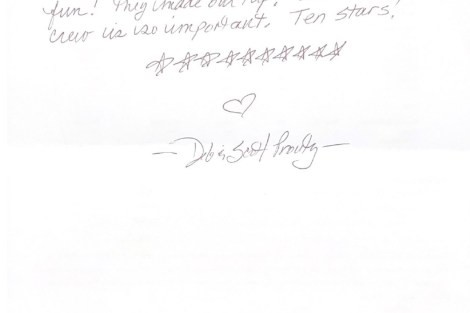 fun! They made our trip.
crew is so important. Ten stars!
— Deb & Scott Prouty —